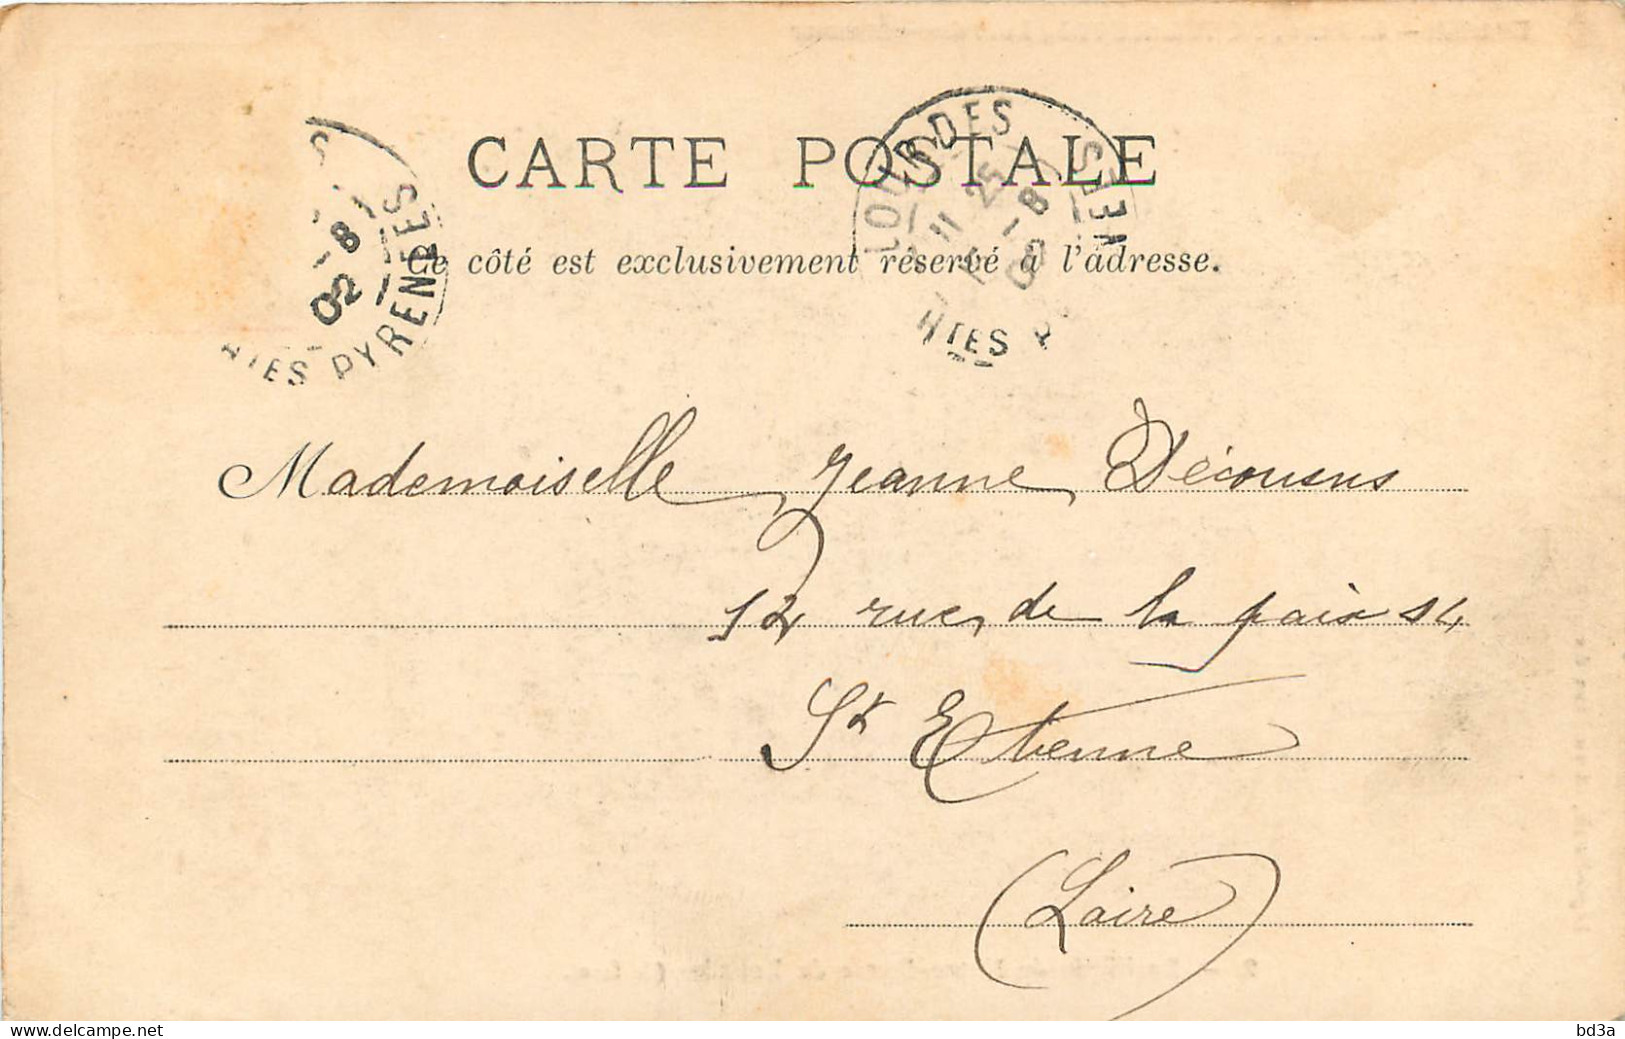 CARTE POSTALE
Ce côté est exclusivement réservé à l'adresse.
LOURDES
11 25
-8
02
HTES P
-8
02
HTES PYRENEES
Mademoiselle Jeanne Décousus
12 rue de la paix 14
St Etienne
(Loire)
delcampe.net
bd3a